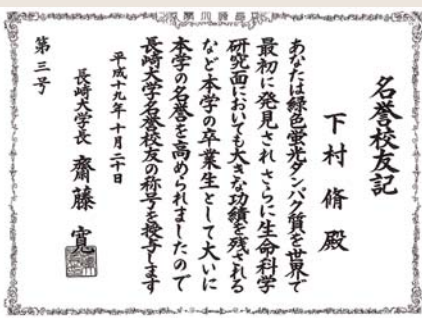 名誉校友記
下村脩殿
あなたは緑色蛍光タンパク質を世界で
最初に発見され さらに生命科学
研究面においても大きな功績を残される
など本学の卒業生として大いに
本学の名誉を高められましたので
長崎大学名誉校友の称号を授与します
平成十九年十月二十日
長崎大学長 齋藤寛
第三号